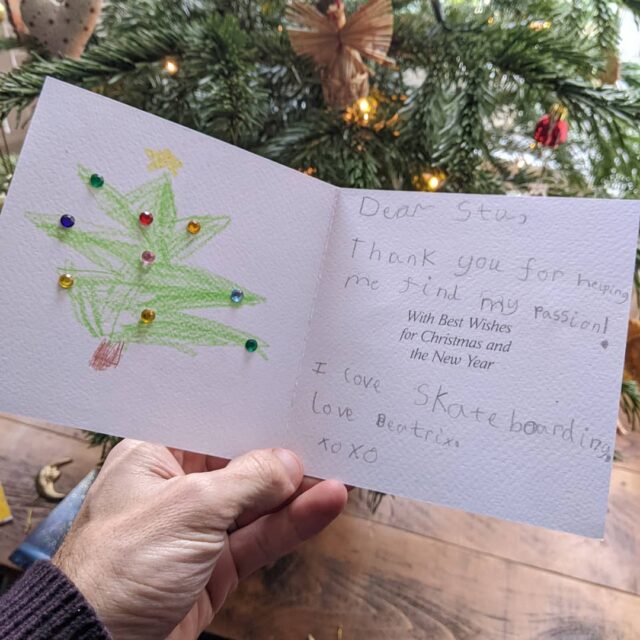 Dear Stu,
Thank you for helping
me find my passion!
With Best Wishes
for Christmas and
the New Year
I love Skateboarding
Love Beatrix
XOXO